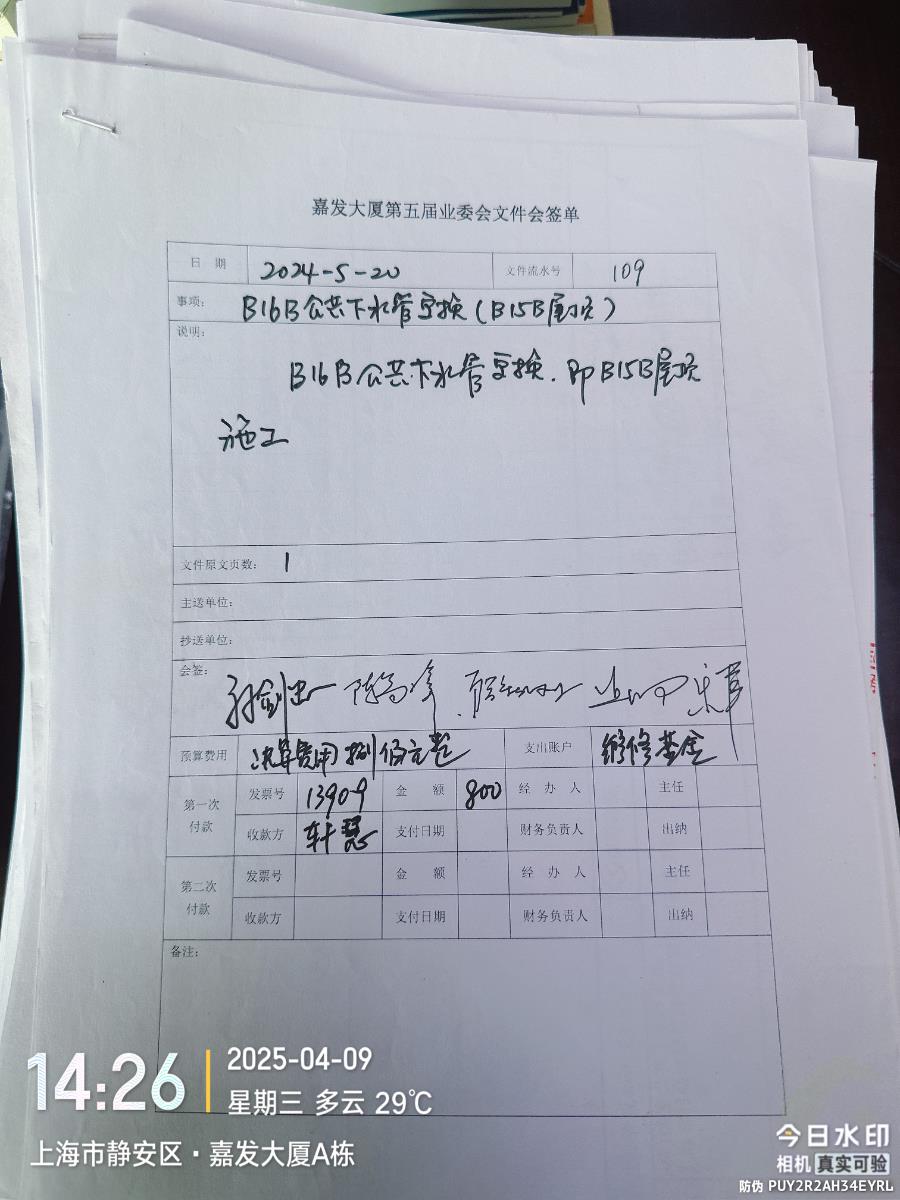 嘉发大厦第五届业委会文件会签单
日 期 2024-5-20 文件流水号 109
事项: B16B公共下水管更换(B15B屋顶)
说明:
B16B公共下水管更换.即B15B屋顶
施工
文件原文页数: 1
主送单位:
抄送单位:
会签:
预算费用 决算费用捌佰元整 支出账户 维修基金
第一次付款 发票号 13909 金 额 800 经 办 人 主任
收款方 轩慧 支付日期 财务负责人 出纳
第二次付款 发票号 金 额 经 办 人 主任
收款方 支付日期 财务负责人 出纳
备注:
14:26 2025-04-09
星期三 多云 29℃
上海市静安区·嘉发大厦A栋
今日水印
相机 真实可验
防伪 PUY2R2AH34EYRL